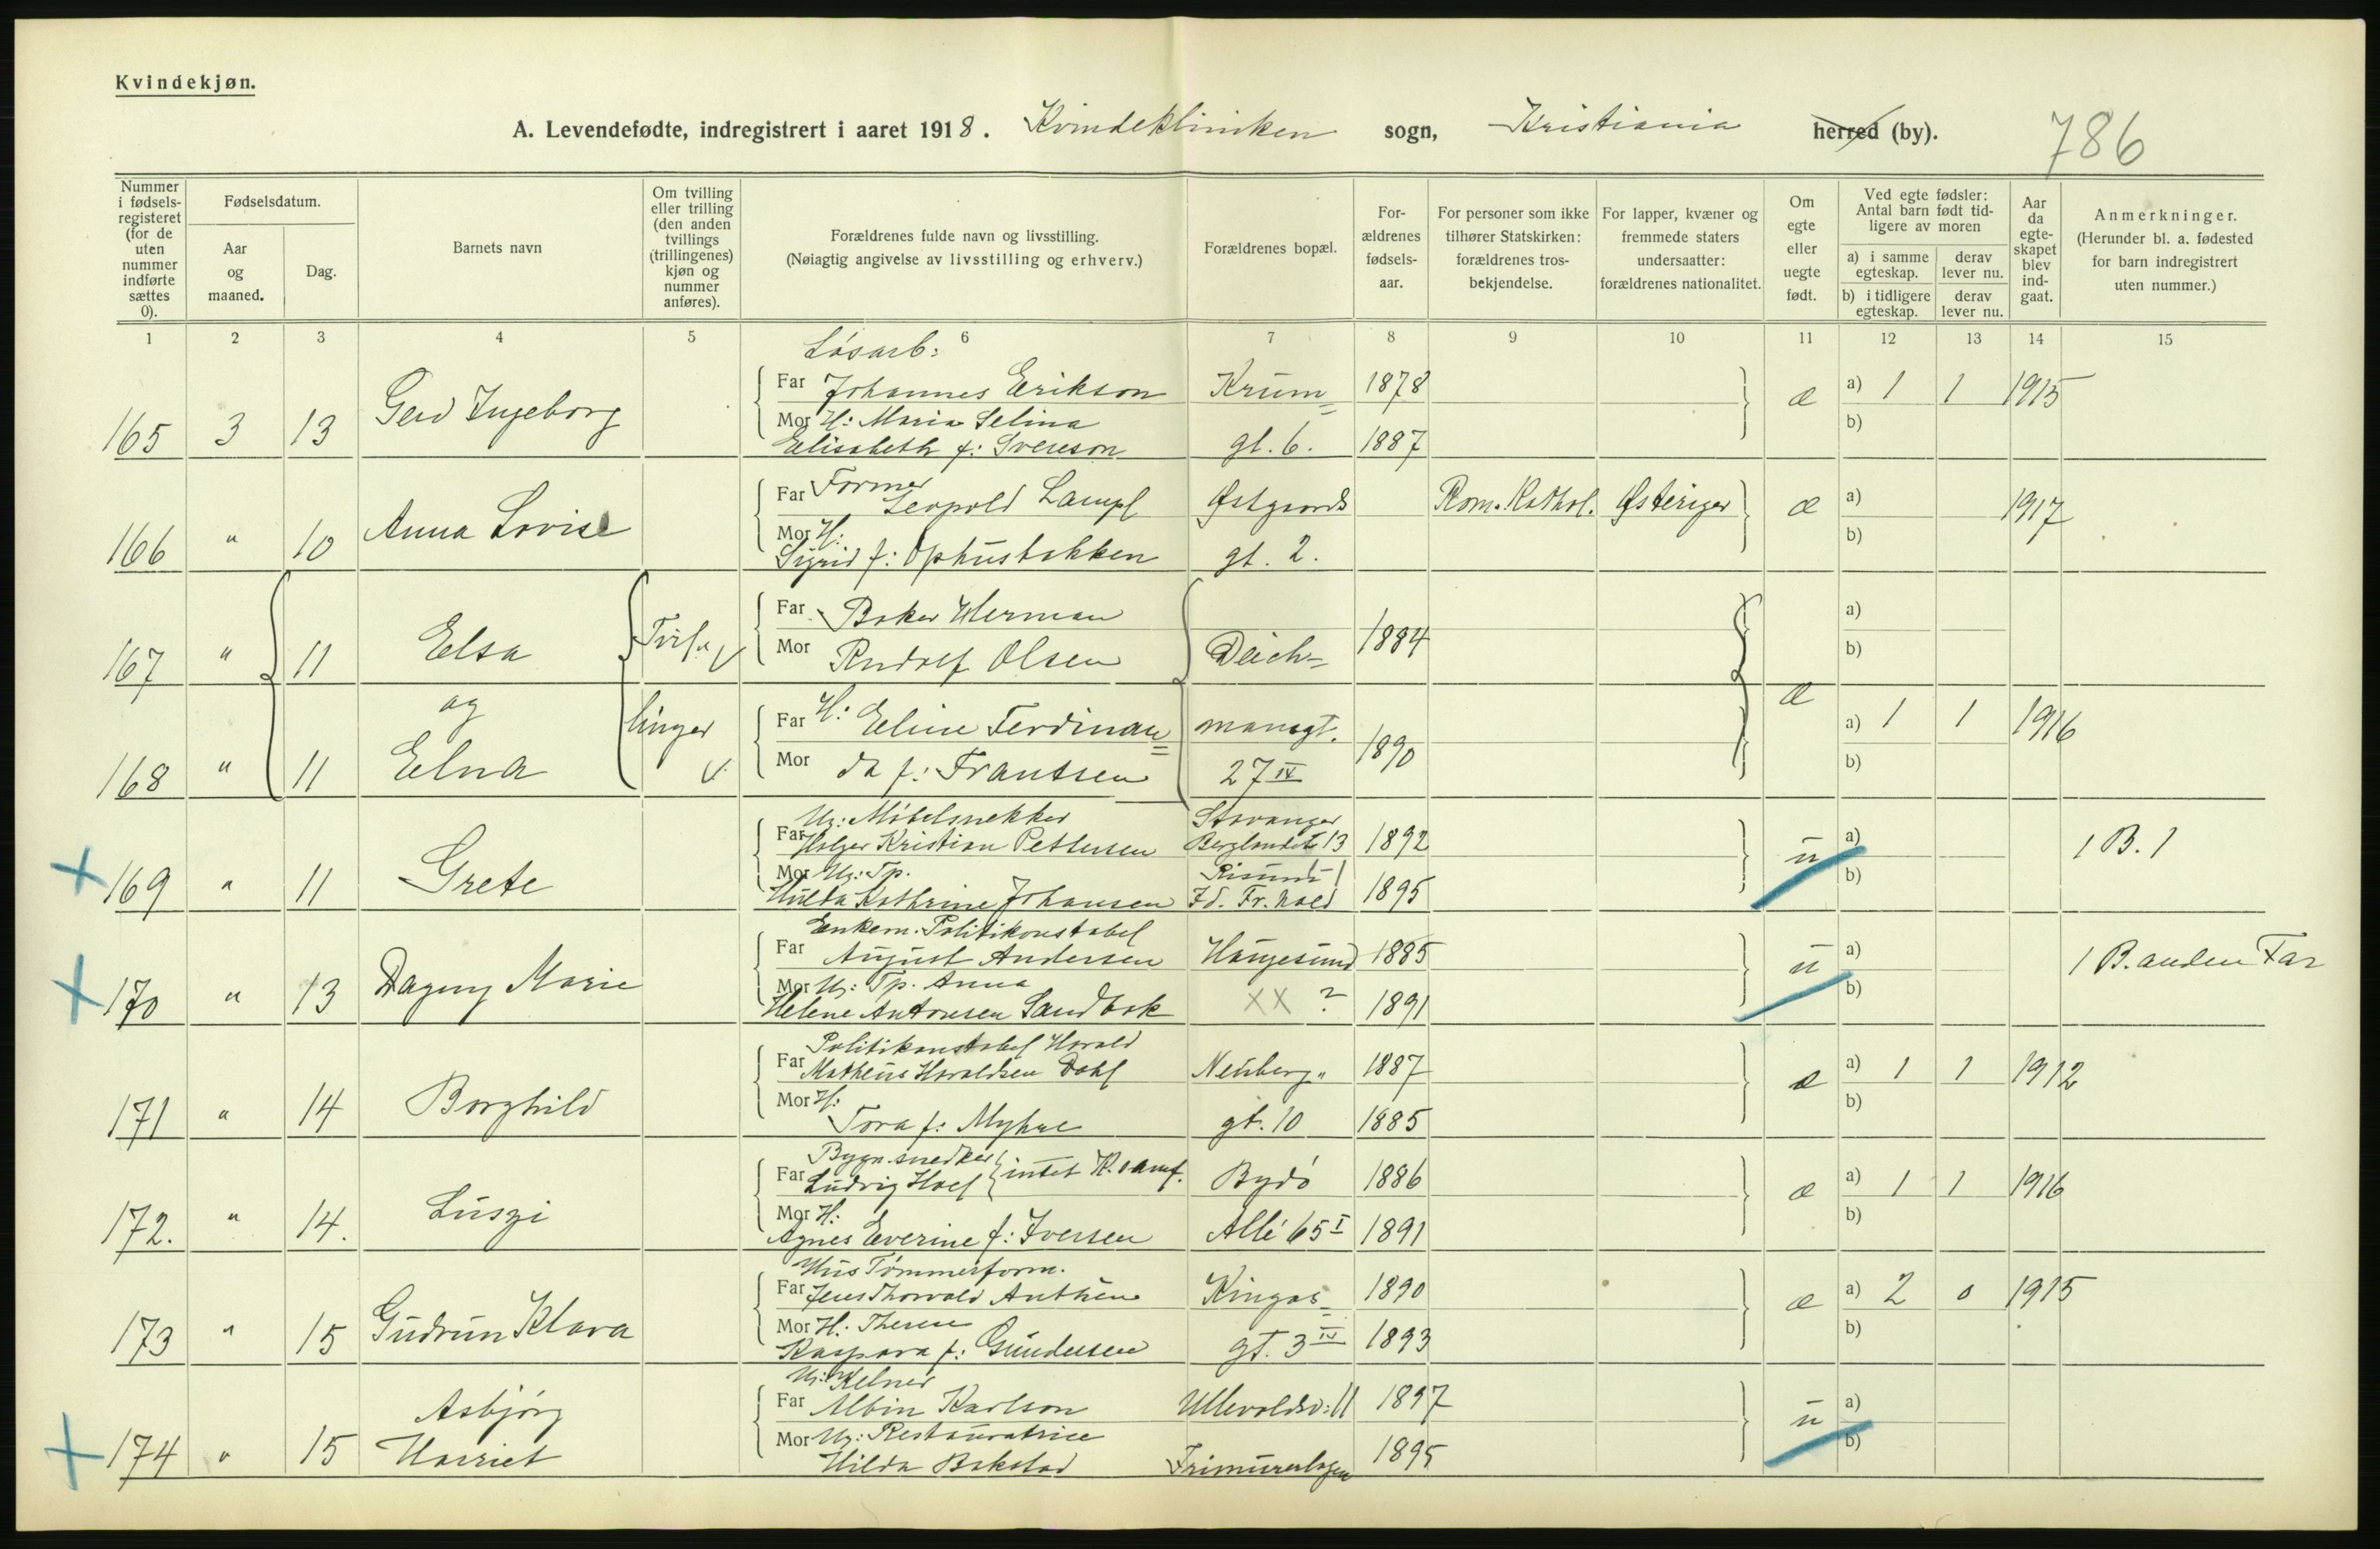 Kvindekjøn.
A. Levendefødte, indregistrert i aaret 1918. Kvindeklinikken sogn, Kristiania herred (by).
786
Nummer i fødselsregisteret (for de uten nummer indførte sættes 0).
Fødselsdatum.
Aar og maaned.
Dag.
Barnets navn
Om tvilling eller trilling (den anden tvillings (trillingenes) kjøn og nummer anføres).
Forældrenes fulde navn og livsstilling.
(Nøiagtig angivelse av livsstilling og erhverv.)
Forældrenes bopæl.
Forældrenes fødselsaar.
For personer som ikke tilhører Statskirken: forældrenes trosbekjendelse.
For lapper, kvæner og fremmede staters undersaatter: forældrenes nationalitet.
Om egte eller uegte født.
Ved egte fødsler: Antal barn født tidligere av moren
a) i samme egteskap.
derav lever nu.
b) i tidligere egteskap.
derav lever nu.
Aar da egteskapet blev indgaat.
Anmerkninger.
(Herunder bl. a. fødested for barn indregistrert uten nummer.)
1 2 3 4 5 6 7 8 9 10 11 12 13 14 15
Løsarb:
165 3 13 Gerd Ingeborg Far Johannes Erikson Krum= 1878 æ a) 1 1 1915
Mor H: Maria Selina b)
Elisabeth f: Svereson gt. 6. 1887
166 " 10 Anna Lovise Far Former
Leopold Lampl Østgaards Rom. Kathol. Østeriger æ a) 1917
Mor H: b)
Sigrid f: Ophusbakken gt. 2.
167 " 11 Elsa Tvil= Far Baker Herman 1884 a)
Mor Rudolf Olsen Deich= b)
og
168 " 11 Elna linger Far H: Eline Ferdinan= mansgt. 1890 æ a) 1 1 1916
Mor da f: Frantsen 27 IV b)
Ug: Møbelsnekker Stavanger
169 " 11 Grete Far Holger Kristian Pettersen Berglandsgt 13 1892 u a) 1 B. 1
Mor Ug: Tp. b)
Hulda Kathrine Johansen Fr.hald 1895
Enkem. Politikonstabel
170 " 13 Dagny Marie Far August Andersen Haugesund 1885 u a) 1 B. anden Far
Mor Ug: Tp. Anna b)
Helene Antonsen Sandbak XX ? 1891
Politikonstabel Harald
171 " 14 Borghild Far Matheus Haraldsen Dahl Neuberg" 1887 æ a) 1 1 1912
Mor H: b)
Tora f: Myhre gt. 10 1885
Bygn.snedker
172. " 14. Luszi Far Ludvig Hoel intet K. samf. Bygdö 1886 æ a) 1 1 1916
Mor H: b)
Agnes Everine f: Iversen Allé 65 I 1891
Hus Tømmerform.
173 " 15 Gudrun Klara Far Jens Thorvald Anthun Kingos= 1890 æ a) 2 0 1915
Mor H: Therese b)
Kaspara f: Gundersen gt. 3 IV 1893
Ug: Kelner
174 " 15 Asbjørg Far Albin Karlson Ullevoldsv: 11 1897 u a)
Harriet Mor Ug: Restauratrice b)
Hilda Bakstad Frimurerlogen 1895